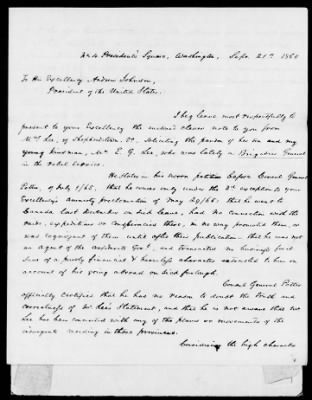 No. 10 Presidents' Square, Washington, Sept. 21st 1865
To His Excellency Andrew Johnson,
President of the United States.
I beg leave most respectfully to
present to your Excellency the enclosed note to you from
Mrs Lee, of Shepherdstown, Va. soliciting the pardon of her son and my
young kinsman, Mr. E. G. Lee, who was lately a Brigadier General
in the rebel service.
He states in his sworn petition before Consul General
Potter, of July 1/65, that he comes only under the 3d exception to your
Excellency's amnesty proclamation of May 29/65; that he went to
Canada last December on sick leave, had no connection with the
raids, expeditions or conspiracies there, in no way promoted them, or
was cognizant of them until after their publication; that he was not
an agent of the Govt., and transacted no business but
of a purely financial & character to him on
account of his going abroad on sick furlough.
Consul General Potter
officially certifies that he has no reason to doubt the truth and
correctness of Mr. Lee's statement, and that he is not aware that Mr
Lee has been connected with any of the plans or movements of the
insurgents residing in those provinces.
Considering the high character